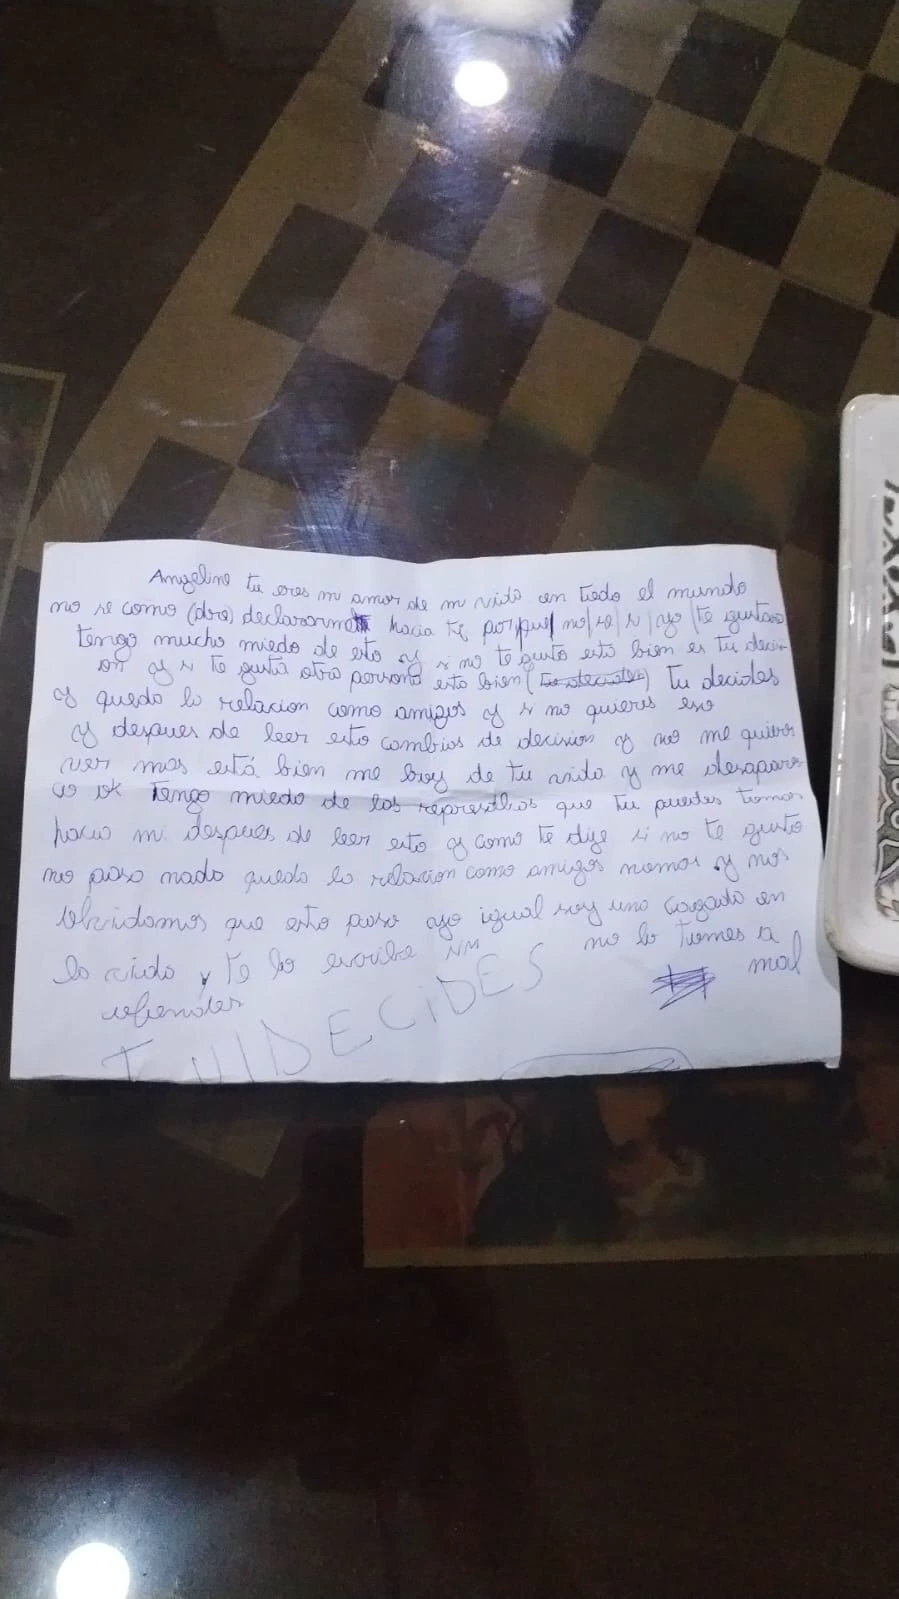 Angeline tu eres mi amor de mi vida en todo el mundo
no se como (dra) declararme hacia ti porque no se si yo te gustara
tengo mucho miedo de esto y si no te gusto está bien es tu decisi-
on y si te gusta otra persona esta bien (tu decides) Tu decides
y queda la relacion como amigos y si no quieres eso
y despues de leer esto cambias de decision y no me quieres
ver mas está bien me boy de tu vida y me desapares-
co ok Tengo miedo de las represalias que tu puedas tomar
hacia mi despues de leer esto y como te dije si no te gusto
no pasa nada queda la relacion como amigos nomas y nos
olvidamos que esto paso yo igual soy una cagada en
la vida y Te lo escribe NM no lo tomes a
mal
TU DECiDES